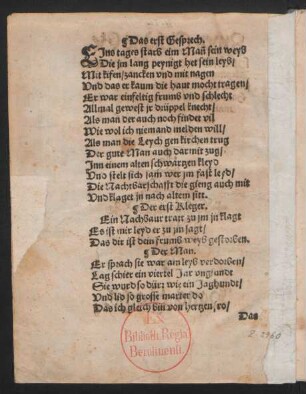 ¶Das erst Gesprech.
EIns tages starb eim Mañ sein weyb
Die jm lang peynigt het sein leyb/
Mit kifen/zancken vnd mit nagen
Vnd das er kaum die haut mocht tragen/
Er war einfeltig frumb vnd schlecht
Allmal gewest jr drüppel knecht/
Als man der auch noch findet vil
Wie wol ich niemand melden will/
Als man die Leych gen kirchen trug
Der gute Man auch darmit zug/
Inn einem alten schwartzen kleyd
Vnd stelt sich sam wer jm fast leyd/
Die Nachbarschafft die gieng auch mit
Vnd klaget jn nach altem sitt.
¶Der erst Kleger.
Ein Nachbaur trat zu jm jn klagt
Es ist mir leyd er zu jm sagt/
Das dir ist dein frumb weyb gestorben.
¶Der Man.
Er sprach sie war am leyb verdorben/
Lag schier ein viertel Jar ongsundt
Sie wurd so dürr wie ein Jaghundt/
Vnd lid so grosse marter do
Das ich gleich bin von hertzen fro/
Das
EX
Biblioth. Regia
Berolinensi.